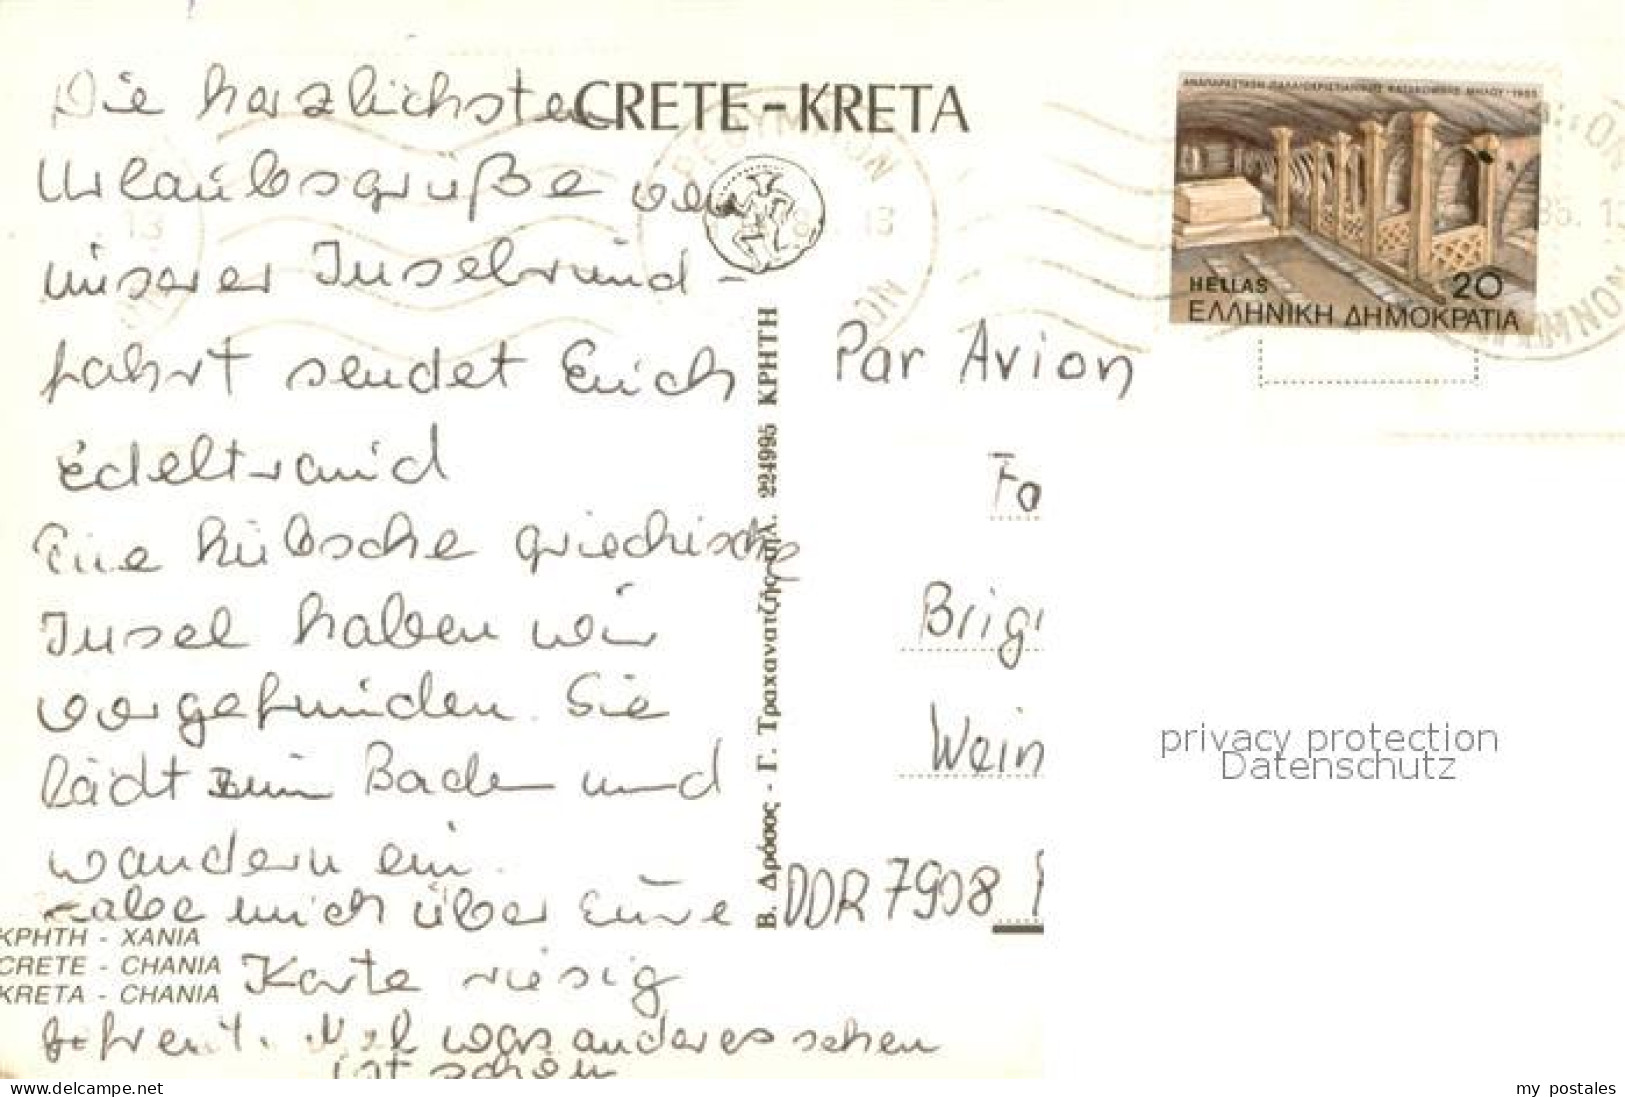 Die herzlichsten
Urlaubsgrüße von
unserer Inselrund-
fahrt sendet Euch
Edeltraud
Eine hübsche griechische
Insel haben wir
vorgefunden. Sie
lädt zum Baden und
wandern ein.
Habe mich über Eure
Karte riesig
gefreut. Mal was anderes sehen
ist schön
CRETE-KRETA
Β. Δρόσος - Γ. Τραχανατζής τηλ. 224995 ΚΡΗΤΗ
ΚΡΗΤΗ - ΧΑΝΙΑ
CRETE - CHANIA
KRETA - CHANIA
ΑΝΑΠΑΡΑΣΤΑΣΗ ΠΑΛΑΙΟΧΡΙΣΤΙΑΝΙΚΗΣ ΚΑΤΑΚΟΜΒΗΣ ΜΗΛΟΥ-1985
HELLAS 20
ΕΛΛΗΝΙΚΗ ΔΗΜΟΚΡΑΤΙΑ
Par Avion
Fa
Brigi
Wein
DDR 7908
privacy protection
Datenschutz
www.delcampe.net
my_postales